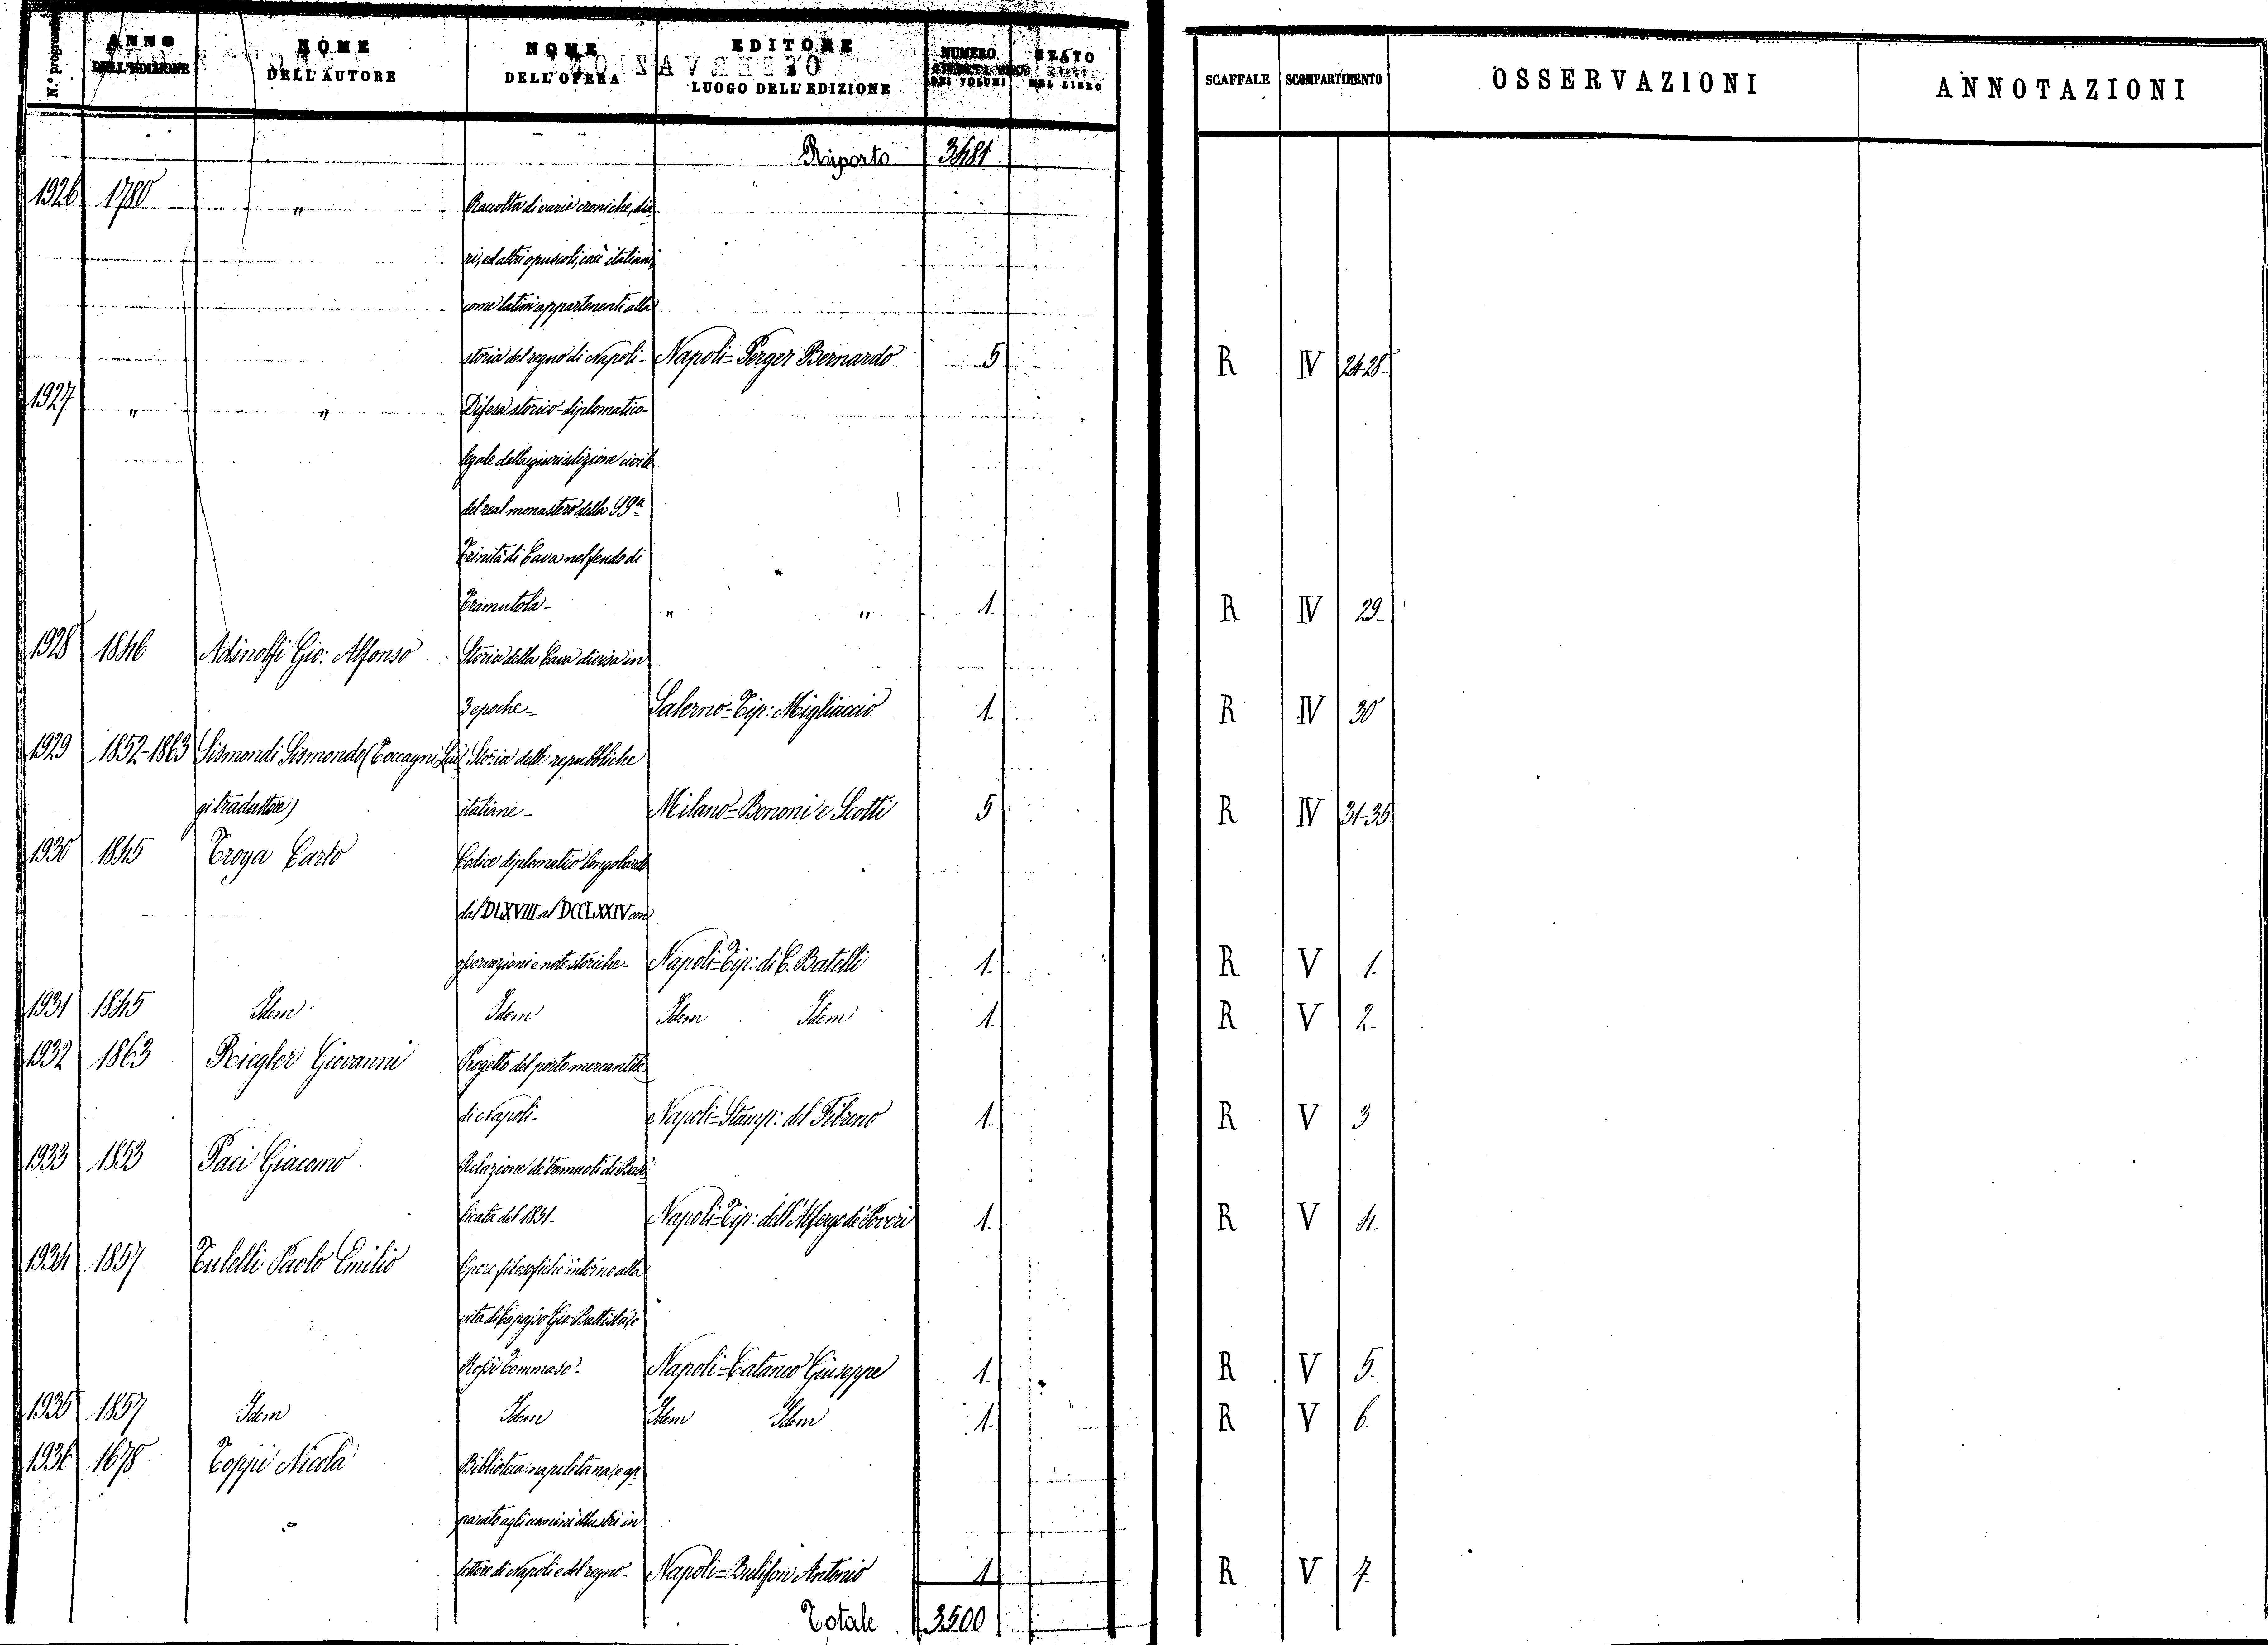 N.° progress. ANNO DELL'EDIZIONE NOME DELL'AUTORE NOME DELL'OPERA EDITORE LUOGO DELL'EDIZIONE NUMERO DEI VOLUMI STATO DEL LIBRO SCAFFALE SCOMPARTIMENTO OSSERVAZIONI ANNOTAZIONI
Riporto 3481
1926 1780 " Raccolta di varie croniche, dia
ri, ed altri opuscoli, così italiani,
come latini appartenenti alla
storia del regno di Napoli- Napoli= Perger Bernardo 5 R IV 24-28.
1927 " " Difesa storico-diplomatico
legale della giurisdizione civile
del real monastero della SSa
Trinità di Cava nel feudo di
Tramutola- " " 1. R IV 29.
1928 1846 Adinolfi Gio: Alfonso Storia della Cava divisa in
3 epoche- Salerno=Tip: Migliaccio 1. R IV 30
1929 1852-1863 Sismondi Sismondo (Toccagni Lui Storia delle repubbliche
gi traduttore) italiane- Milano=Bononi e Scotti 5 R IV 31-35
1930 1845 Troya Carlo Codice diplomatico longobardo
dal DLXVIII al DCCLXXIV con
osservazioni e note storiche- Napoli=Tip: di C. Batelli 1. R V 1.
1931 1845 Idem Idem Idem Idem 1. R V 2.
1932 1863 Riegler Giovanni Progetto del porto mercantile
di Napoli- Napoli=Stamp: del Fibreno 1. R V 3
1933 1853 Paci Giacomo Relazione de' tremuoti di Basi
licata del 1851- Napoli=Tip: dell'Albergo de' Poveri 1. R V 4.
1934 1857 Tulelli Paolo Emilio Opere filosofiche intorno alla
vita di Capasso Gio: Battista, e
Rossi Tommaso- Napoli=Cataneo Giuseppe 1. R V 5.
1935 1857 Idem Idem Idem Idem 1. R V 6.
1936 1678 Toppi Nicola Biblioteca napoletana, e ap
parato agli uomini illustri in
lettere di Napoli e del regno- Napoli=Bulifon Antonio 1 R V 7.
Totale 3500